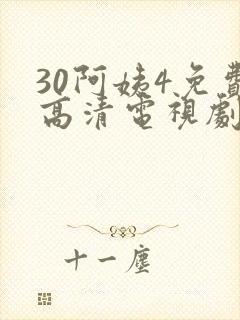 30阿姨4免費
高清電視劇
十一塵